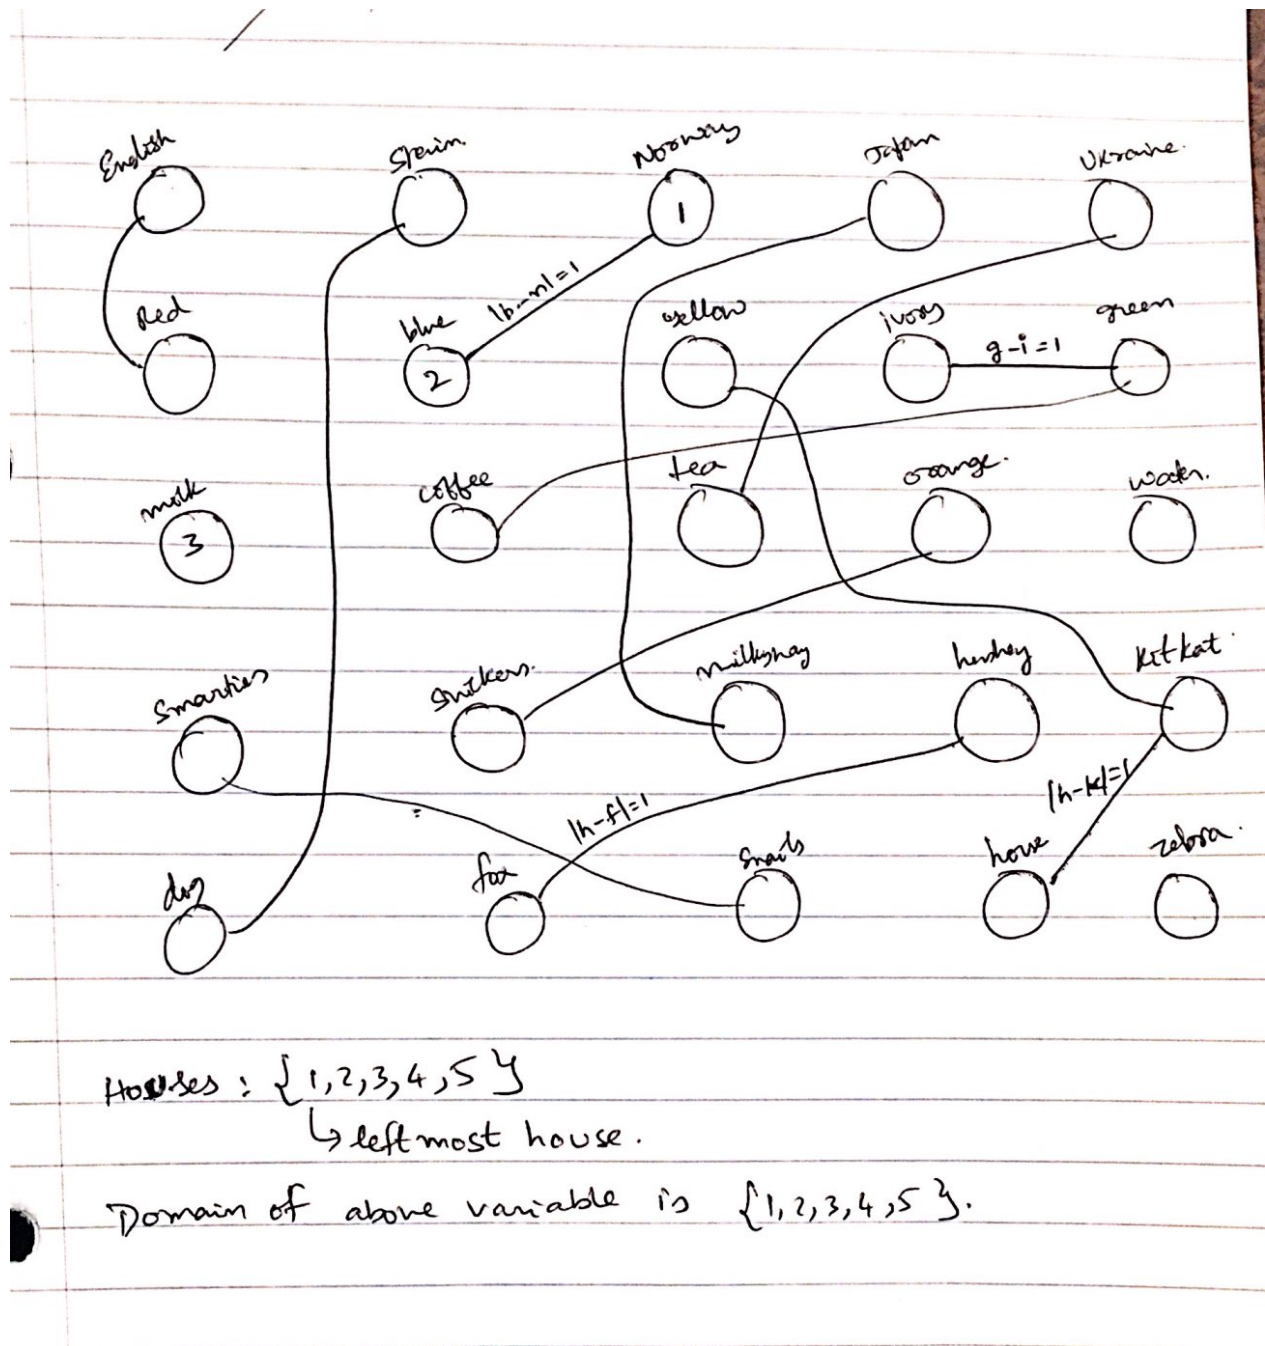 English Spain. Norway Japan Ukraine.
1
|b-n|=1
Red blue yellow ivory green
2 g-i=1
milk coffee tea orange. water.
3
Smarties Snikers. milkyway hershey kitkat
|h-f|=1 |h-k|=1
=
dog fox Snails horse zebra.
Houses : {1,2,3,4,5}
↳ leftmost house.
Domain of above variable is {1,2,3,4,5}.